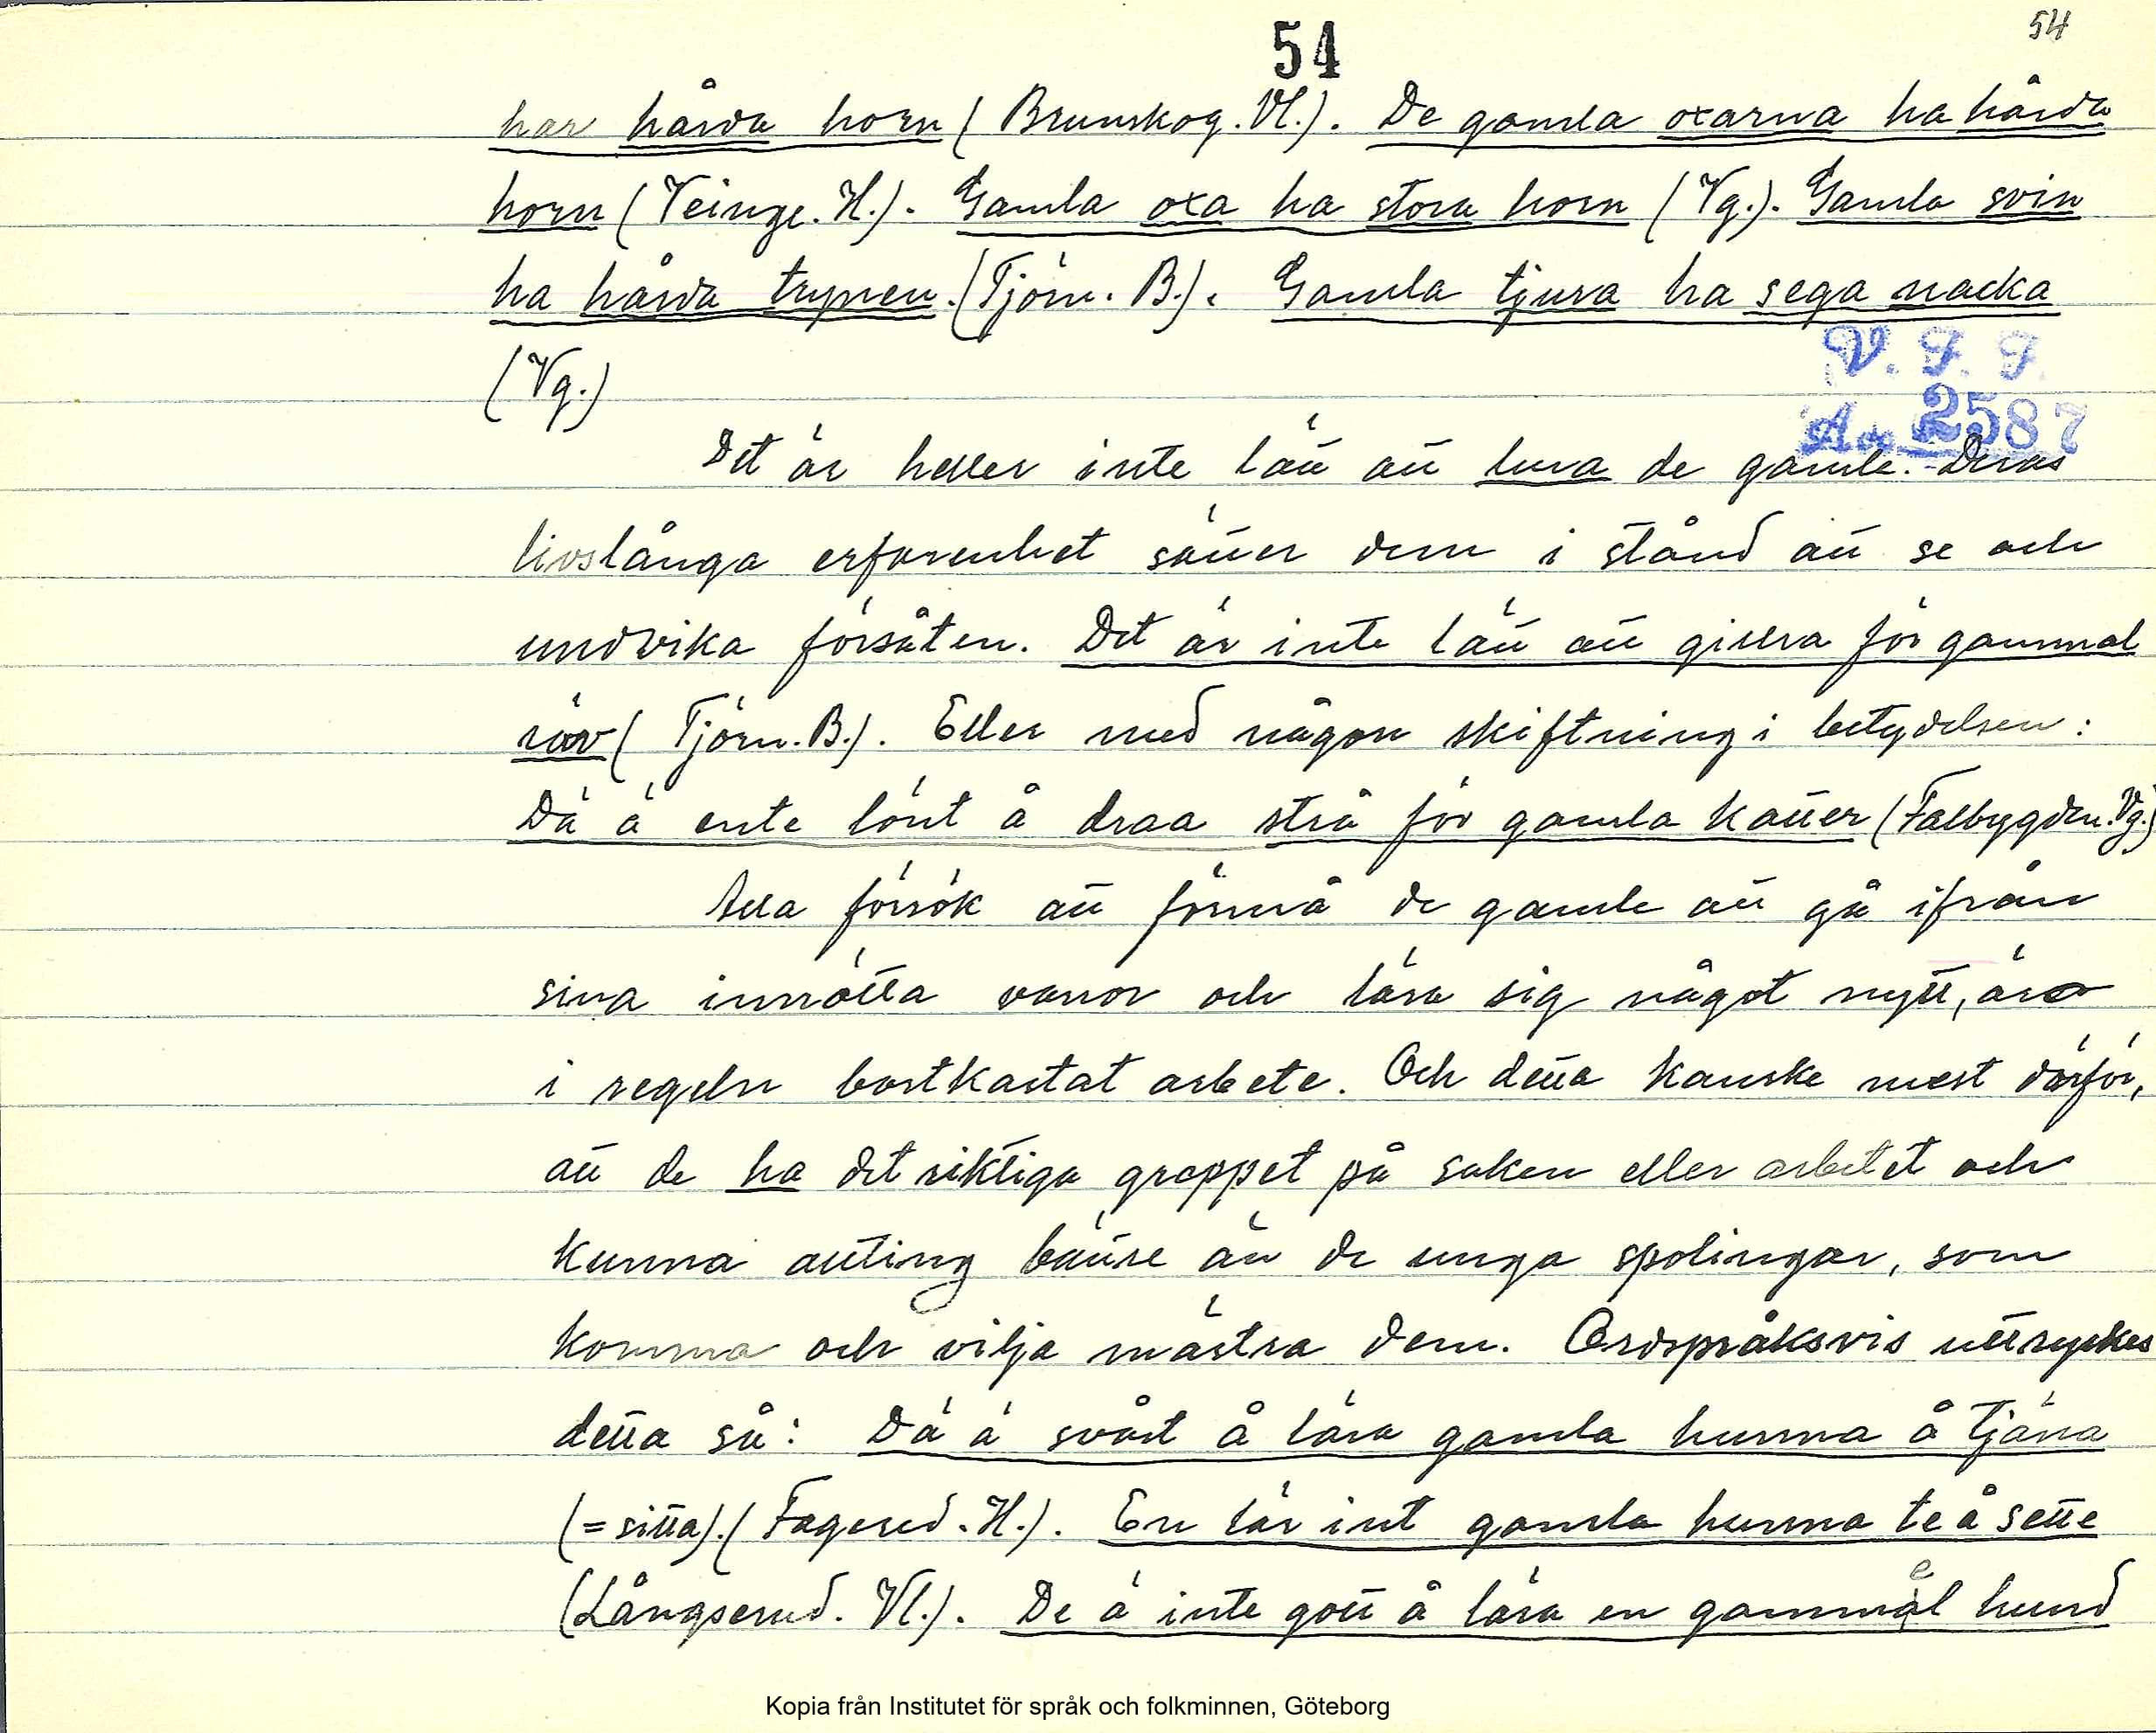 54
54
har hårda horn (Brunskog. Vl.). De gamla oxarna ha hårda
horn (Veinge. H.). Gamla oxa ha stora horn (Vg.). Gamla svin
ha hårda trynen. (Tjörn. B.). Gamla tjura ha sega nacka
(Vg.)
V. F. F.
Acc 2587
Det är heller inte lätt att lura de gamle. Deras
livslånga erfarenhet sätter dem i stånd att se och
undvika försåten. Det är inte lätt att gillra för gammal
räv (Tjörn. B.). Eller med någon skiftning i betydelsen:
Dä ä ente lönt å draa strå för gamla katter (Falbygden. Vg.)
Alla försök att förmå de gamle att gå ifrån
sina inrotta vanor och lära sig något nytt, är
i regeln bortkastat arbete. Och detta kanske mest därför,
att de ha det riktiga greppet på saken eller arbetet och
kunna allting bättre än de unga spolingar, som
komma och vilja mästra dem. Ordspråksvis uttryckes
detta så: Dä ä svårt å lära gamla hunna å tjäna
(=sitta). (Fagered. H.). En lär int gamla hunna te å sette
(Långserud. Vl.). De ä inte gott å lära en gammel hund
Kopia från Institutet för språk och folkminnen, Göteborg